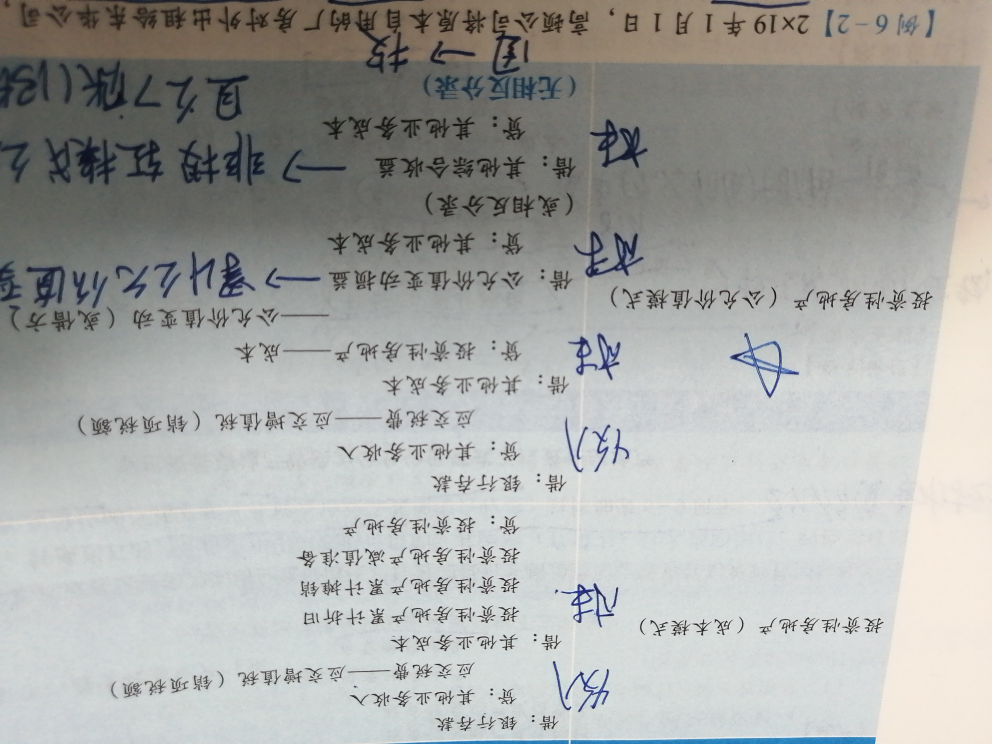 借：银行存款
收入
贷：其他业务收入
应交税费——应交增值税（销项税额）
投资性房地产（成本模式）
借：其他业务成本
成本
投资性房地产累计折旧
投资性房地产累计摊销
投资性房地产减值准备
贷：投资性房地产
借：银行存款
收入
贷：其他业务收入
应交税费——应交增值税（销项税额）
借：其他业务成本
成本
贷：投资性房地产——成本
——公允价值变动（或借方）
投资性房地产（公允价值模式）
借：公允价值变动损益 → 累计公允价值变
贷：其他业务成本
（或相反分录）
借：其他综合收益 → 非投转换
贷：其他业务成本
（无相反分录）
→ 投
【例6-2】2×19年1月1日，高顿公司将原本自用的厂房对外出租给东华公司，